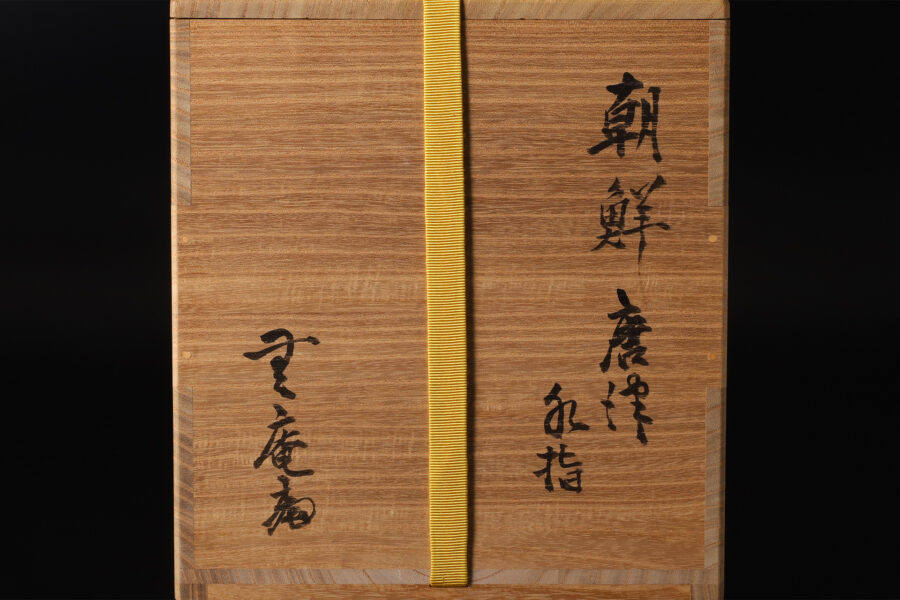 朝鮮唐津
水指
庵